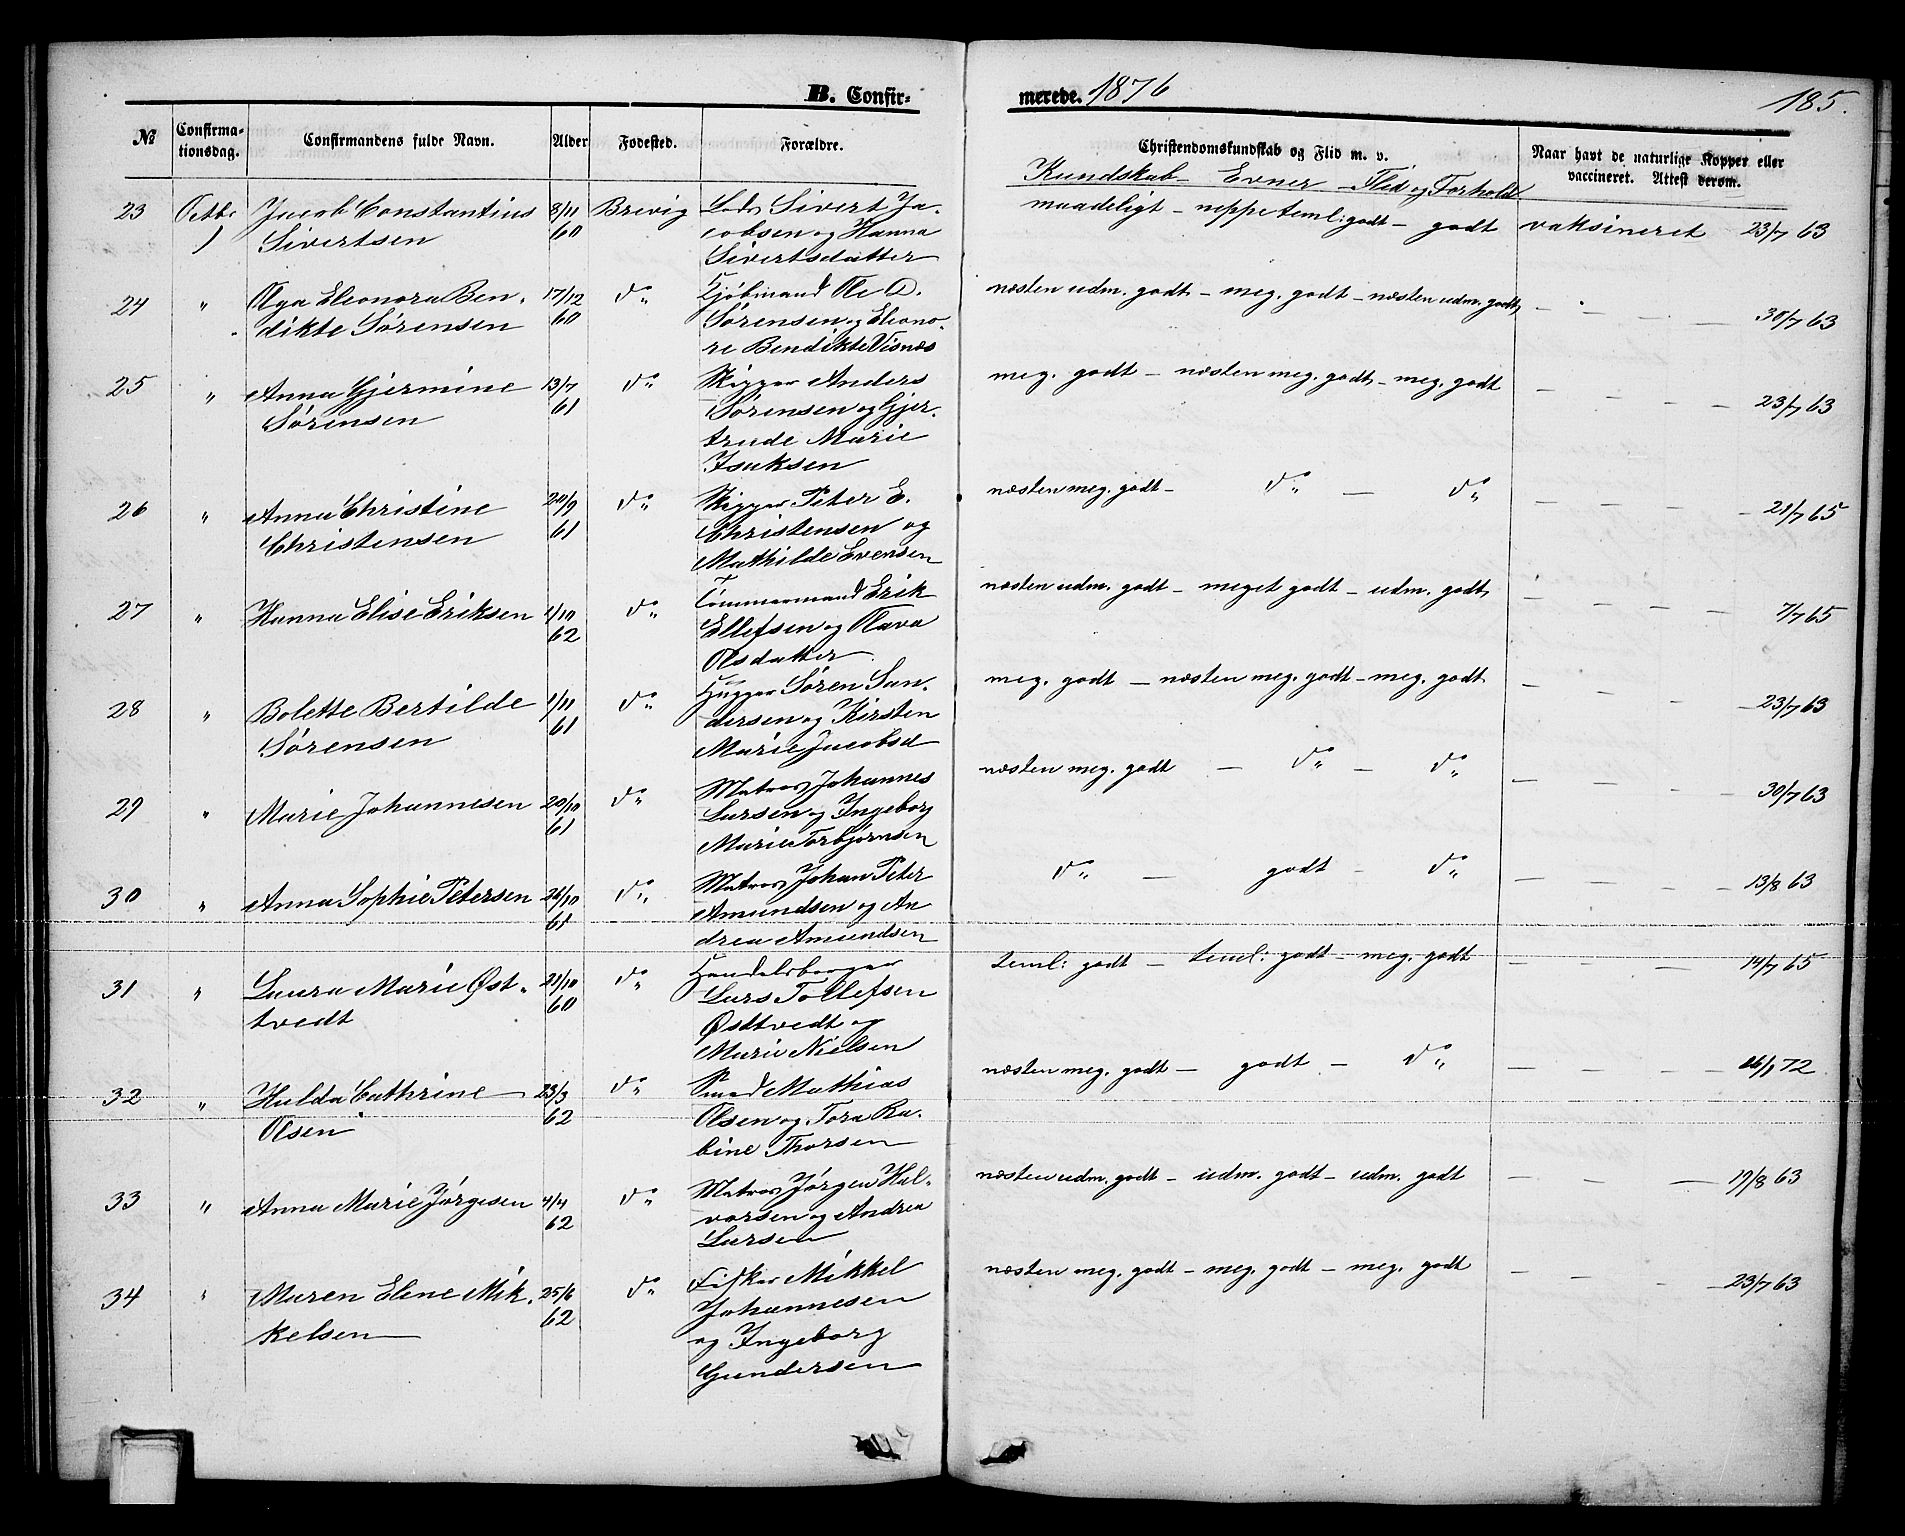 B. Confir-
merede. 1876
185.
№
Confirma-
tionsdag.
Confirmandens fulde Navn.
Alder
Fødested.
Forældre.
Christendomskundskab og Flid m. v.
Naar havt de naturlige Kopper eller
vaccineret. Attest derom.
Kundskab - Evner - Flid og Forhold
23 Octbr Jacob Constantius 8/11 Brevig Lods Sivert Ja-
1) Sivertsen 60 cobsen og Hanna
Sivertsdatter
maadeligt - neppe teml: godt - godt vaksineret 23/7 63
24 " Olga Eleonora Ben- 17/12 do Kjøbmand Ole D.
dikte Sørensen 60 Sørensen og Eleono-
re Bendikte Visnæs
næsten udm. godt - meg. godt - næsten udm. godt - - - - 30/7 63
25 " Anna Gjermine 13/7 do Skipper Anders
Sørensen 61 Sørensen og Gjer-
trude Marie
Isaksen
meg. godt - næsten meg. godt - meg. godt - - - - 23/7 63
26 " Anna Christine 20/9 do Skipper Peter E.
Christensen 61 Christensen og
Mathilde Evensen
næsten meg. godt - do - do - - - - 21/7 65
27 " Hanna Elise Eriksen 1/10 do Tømmermand Erik
62 Ellefsen og Olava
Olsdatter
næsten udm. godt - meget godt - udm. godt - - - - 7/7 65
28 " Bolette Bertilde 1/11 do Hugger Søren San-
Sørensen 61 dersen og Kirsten
Marie Jacobsd
meg. godt - næsten meg. godt - meg. godt - - - - 23/7 63
29 " Marie Johannesen 20/10 do Matros Johannes
61 Larsen og Ingeborg
Marie Torbjørnsen
næsten meg. godt - do - do - - - - 30/7 63
30 " Anna Sophie Petersen 26/10 do Matros Johan Peter
61 Amundsen og An
drea Amundsen
do - godt - do - - - - 13/8 63
31 " Laura Marie Øst- 21/10 do Handelsborger
tvedt 60 Lars Tollefsen
Østtvedt og
Marie Nielsen
teml: godt - teml: godt - meg. godt - - - 14/7 65
32 " Hulda Cathrine 23/3 do Smed Mathias
Olsen 62 Olsen og Tora Ra-
bine Thorsen
næsten meg. godt - godt - do - - - - 72
33 " Anna Marie Jørgesen 4/4 do Matros Jørgen Hal-
62 vorsen og Andrea
Larsen
næsten udm. godt - udm. godt - udm. godt - - - 19/8 63
34 " Maren Elene Mik- 25/6 do Fisker Mikkel
kelsen 62 Johannesen
og Ingeborg
Gundersen
næsten meg. godt - meg. godt - meg. godt - - - - 23/7 63